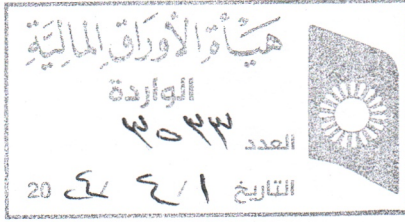 هيأة الأوراق المالية
الواردة
العدد ٣٥٣٣
التاريخ ١ / ٤ / ٢٠ ٤